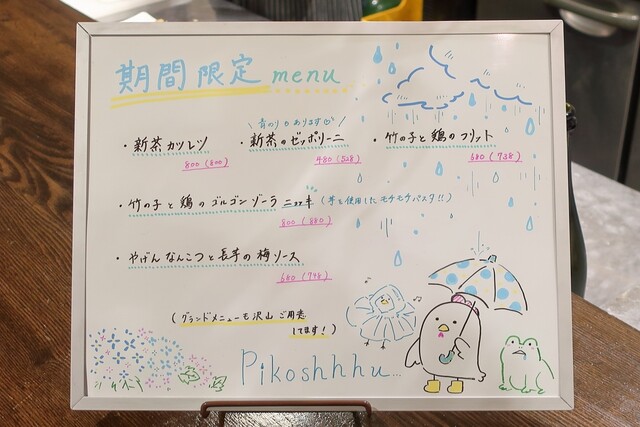 期間限定 menu
青のりもあります
・新茶カツレツ ・新茶のゼッポリーニ ・竹の子と鶏のフリット
800(880) 480(528) 680(738)
・竹の子と鶏のゴルゴンゾーラニョッキ(芋を使用したモチモチパスタ!!)
800(880)
・やげんなんこつと長芋の梅ソース
680(748)
(グランドメニューも沢山ご用意
してます!)
Pikoshhhu...